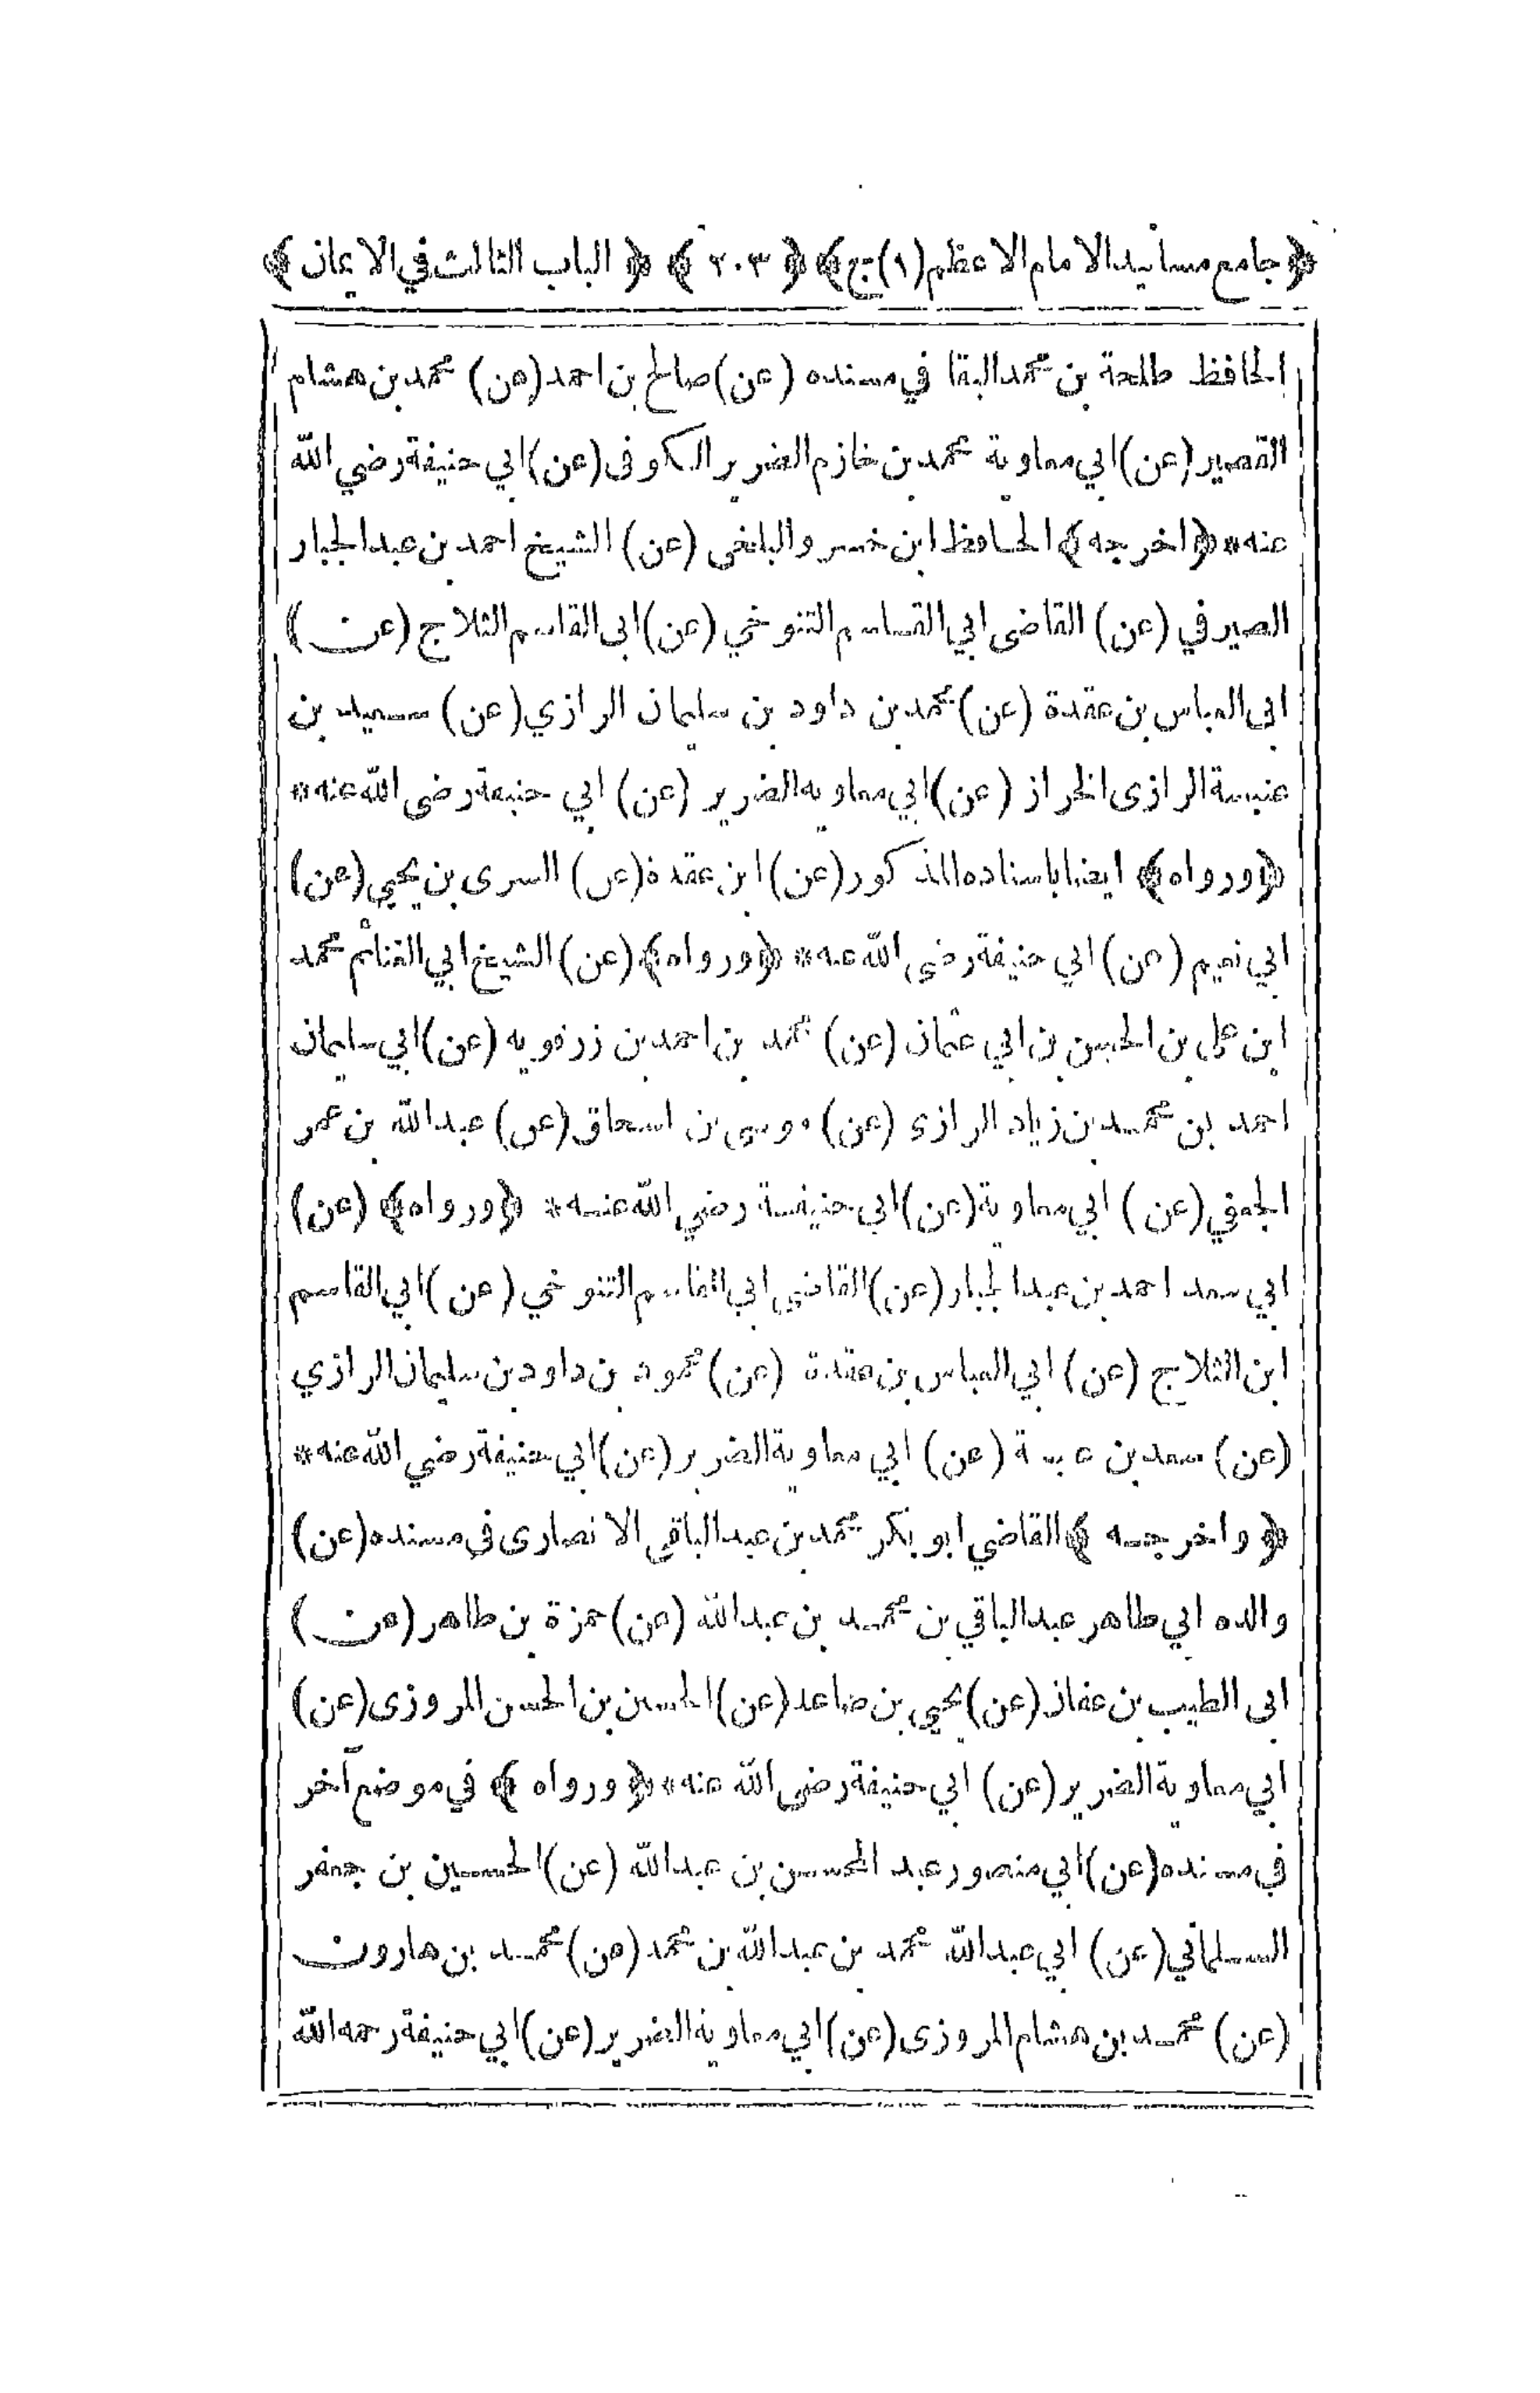 ﴿جامع مسانيد الامام الاعظم (١) ج﴾ ﴿٢٠٣﴾ ﴿الباب الثالث في الايمان﴾
الحافظ طلحة بن محمد البقا في مسنده (عن) صالح بن احمد (عن) محمد بن هشام
القصير (عن) ابي معاوية محمد بن خازم الضرير الكوفى (عن) ابي حنيفة رضي الله
عنه * ﴿اخرجه﴾ الحافظ ابن خسرو البلخى (عن) الشيخ احمد بن عبد الجبار
الصيرفي (عن) القاضى ابي القاسم التنوخي (عن) ابى القاسم الثلاج (عن)
ابى العباس بن عقدة (عن) محمد بن داود بن سليمان الرازي (عن) سعيد بن
عنبسة الرازى الخراز (عن) ابي معاويه الضرير (عن) ابي حنيفة رضى الله عنه *
﴿ورواه﴾ ايضا باسناده المذكور (عن) ابن عقدة (عن) السرى بن يحيى (عن)
ابي نعيم (عن) ابي حنيفة رضى الله عنه * ﴿ورواه﴾ (عن) الشيخ ابي الغنائم محمد
ابن علي بن الحسن بن ابي عثمان (عن) محمد بن احمد بن زرقويه (عن) ابي سليمان
احمد بن محمد بن زياد الرازى (عن) موسى بن اسحاق (عن) عبد الله بن عمر
الجعفي (عن) ابي معاوية (عن) ابي حنيفة رضي الله عنه * ﴿ورواه﴾ (عن)
ابي سعد احمد بن عبد الجبار (عن) القاضى ابي القاسم التنوخي (عن) ابي القاسم
ابن الثلاج (عن) ابي العباس بن عقدة (عن) محمود بن داود بن سليمان الرازي
(عن) سعد بن (عن) ابي معاوية الضرير (عن) ابي حنيفة رضي الله عنه *
﴿واخرجه﴾ القاضي ابو بكر محمد بن عبد الباقى الانصارى في مسنده (عن)
والده ابي طاهر عبد الباقي بن محمد بن عبد الله (عن) حمزة بن طاهر (عن)
ابى الطيب بن عفان (عن) يحيى بن صاعد (عن) الحسين بن الحسن المروزى (عن)
ابي معاوية الضرير (عن) ابي حنيفة رضى الله عنه * ﴿ورواه﴾ في موضع آخر
في مسنده (عن) ابي منصور عبد المحسن بن عبد الله (عن) الحسين بن جعفر
السلماني (عن) ابي عبد الله محمد بن عبد الله بن محمد (عن) محمد بن هارون
(عن) محمد بن هشام المروزى (عن) ابي معاوية الضرير (عن) ابي حنيفة رحمه الله